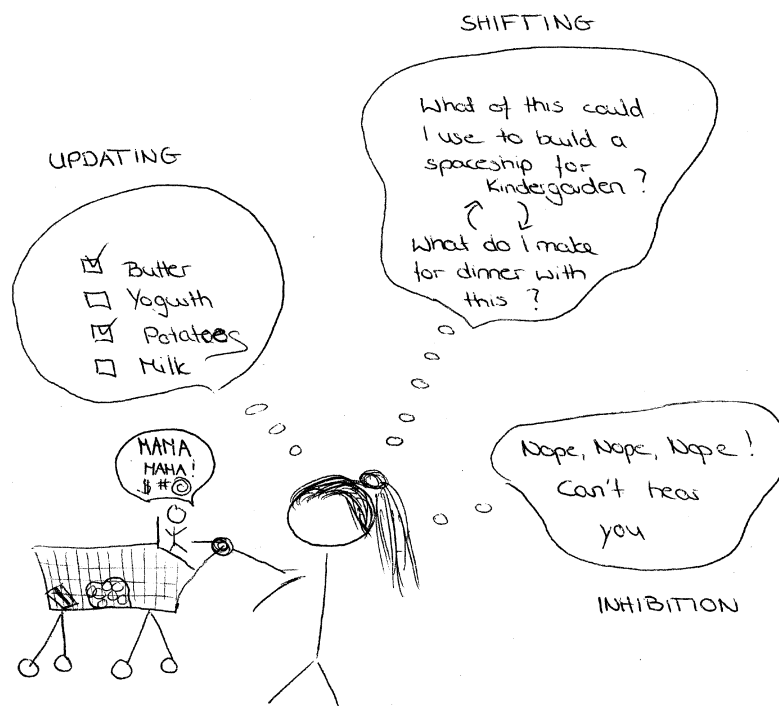 SHIFTING
What of this could
I use to build a
spaceship for
Kindergarden?
What do I make
for dinner with
this ?
UPDATING
Butter
Yogurth
Potatoes
Milk
MAMA
MAMA!
$#@
Nope, Nope, Nope!
Can't hear
you
INHIBITION